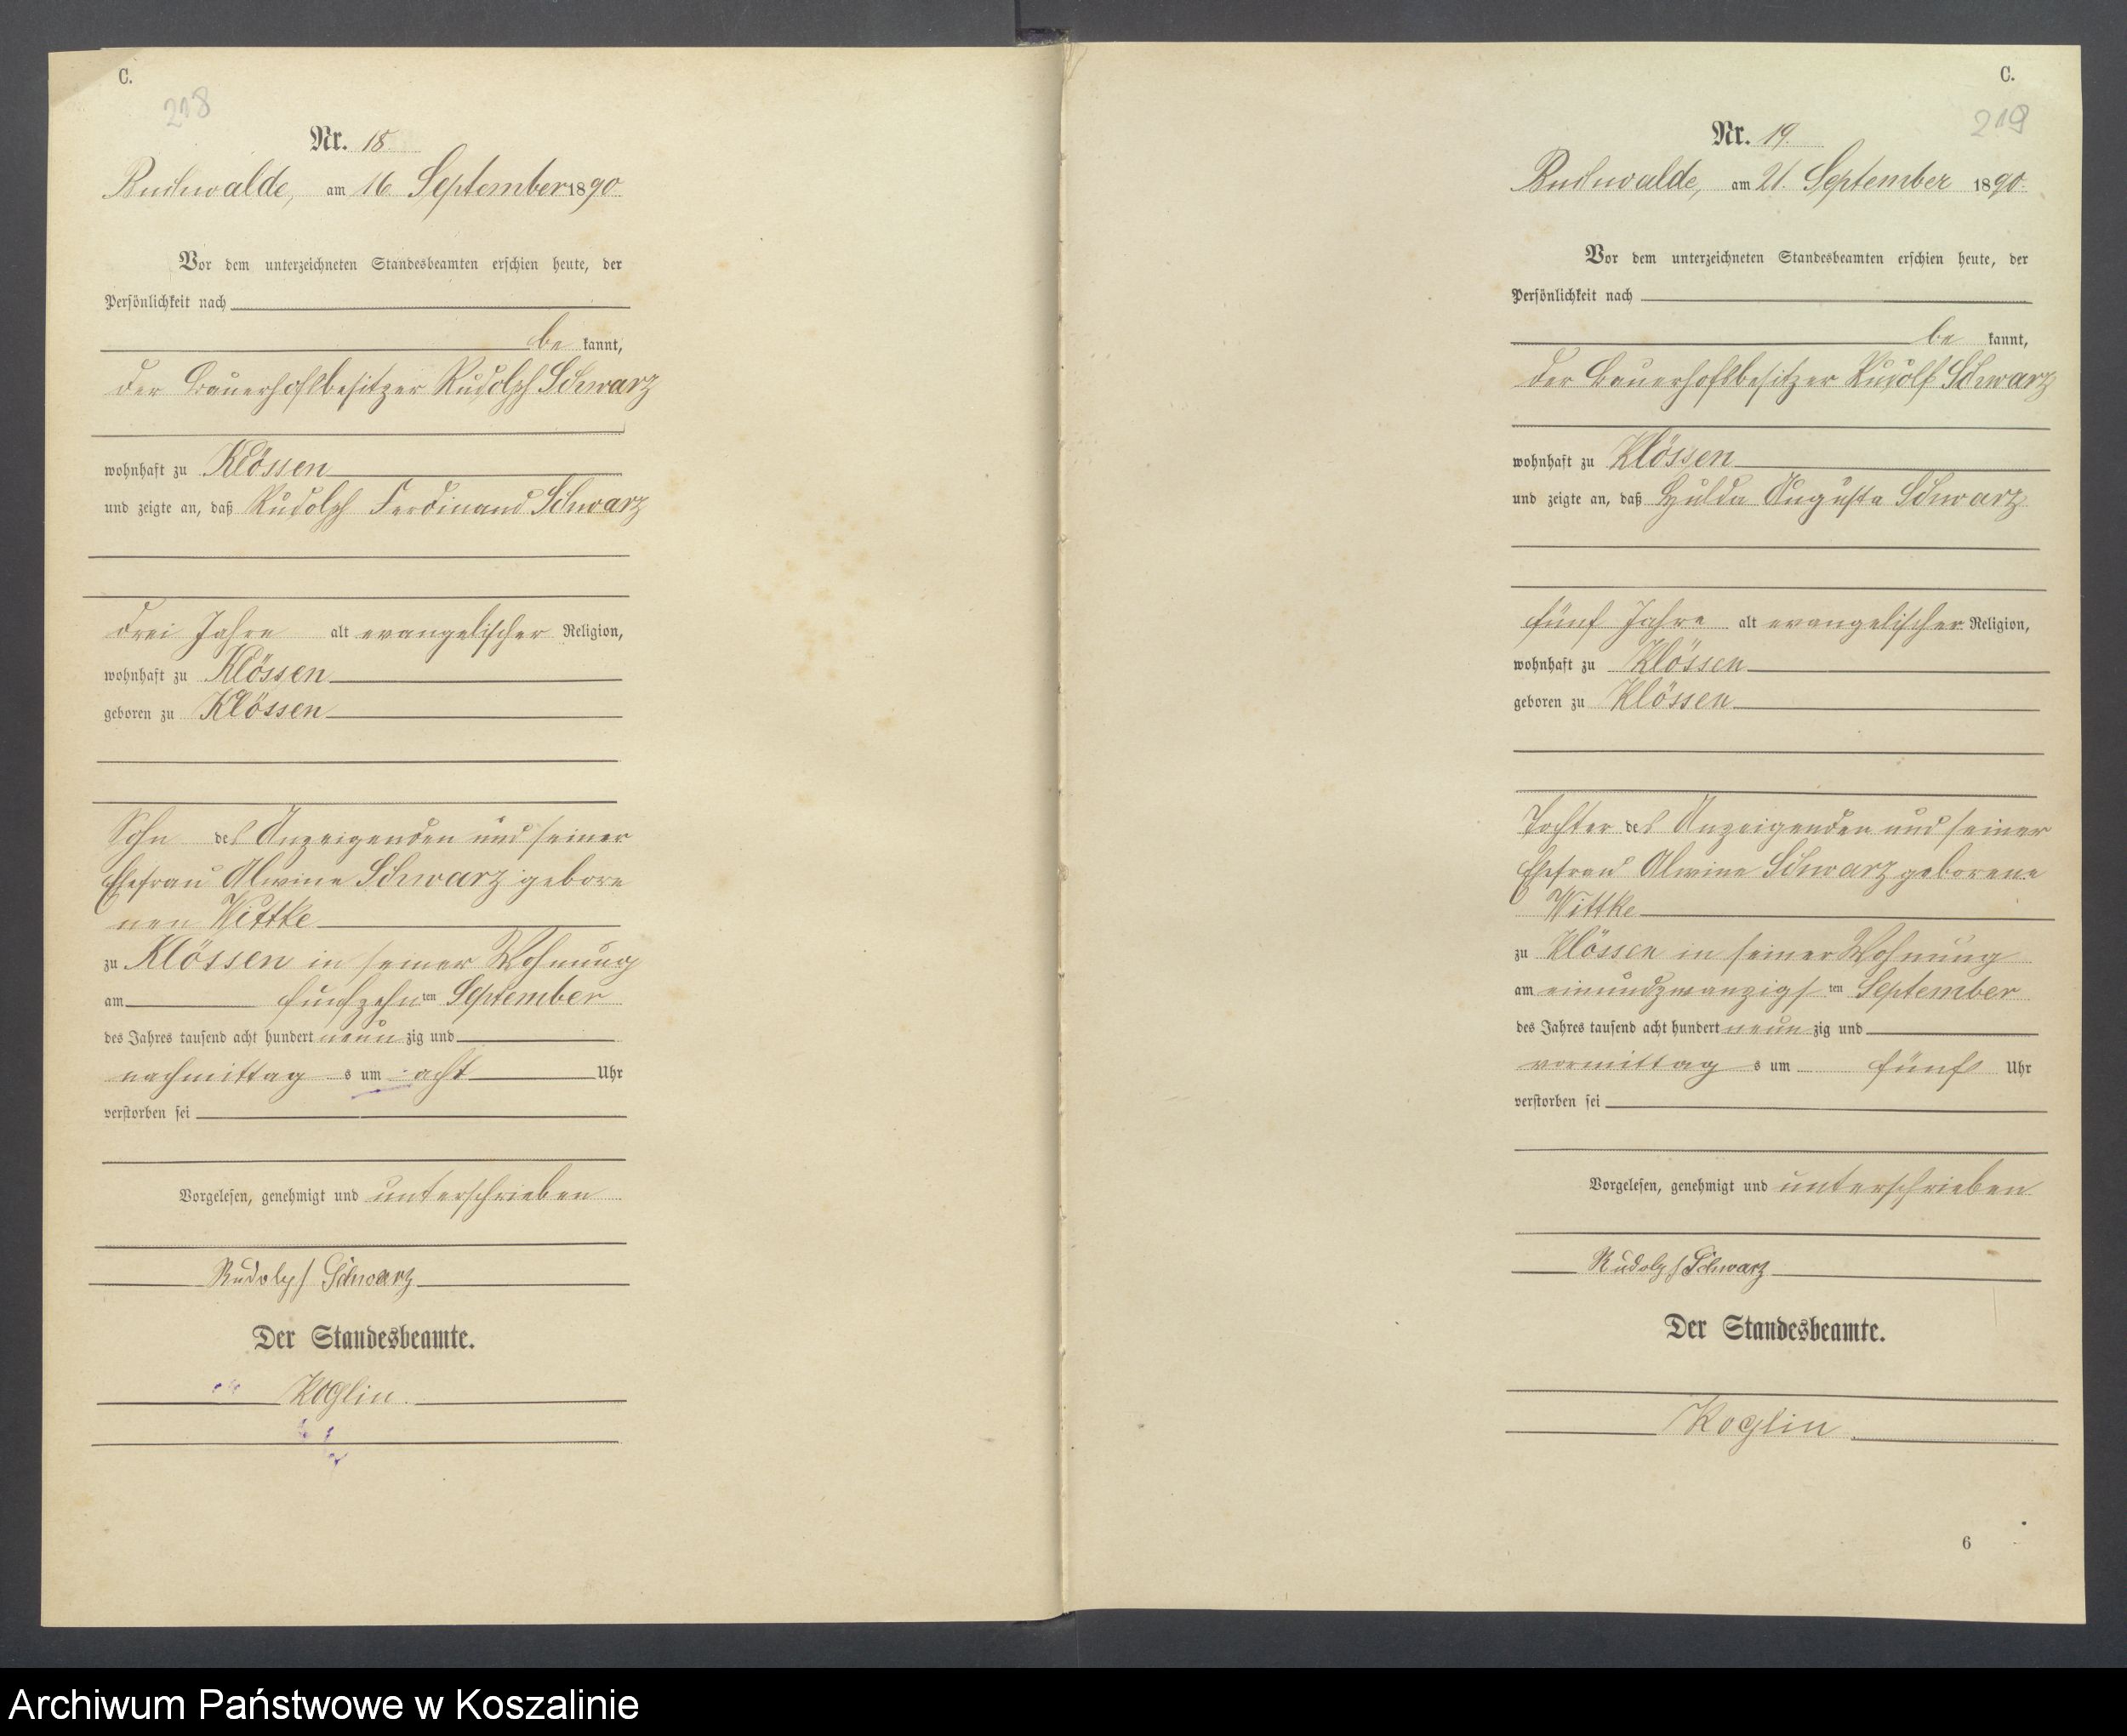 C.
218
Nr. 18
Buchwalde, am 16. September 1890
Vor dem unterzeichneten Standesbeamten erschien heute, der
Persönlichkeit nach
be kannt,
der Bauerhofsbesitzer Rudolph Schwarz
wohnhaft zu Klössen
und zeigte an, daß Rudolph Ferdinand Schwarz
drei Jahre alt evangelischer Religion,
wohnhaft zu Klössen
geboren zu Klössen
Sohn des Anzeigenden und seiner
Ehefrau Alwine Schwarz gebore
nen Wittke
zu Klössen in seiner Wohnung
am fünfzehn ten September
des Jahres tausend acht hundert neun zig und
nachmittag s um acht Uhr
verstorben sei
Vorgelesen, genehmigt und unterschrieben
Rudolph Schwarz
Der Standesbeamte.
Koglin.
C.
219
Nr. 19.
Buchwalde, am 21. September 1890.
Vor dem unterzeichneten Standesbeamten erschien heute, der
Persönlichkeit nach
be kannt,
der Bauerhofsbesitzer Rudolf Schwarz
wohnhaft zu Klössen
und zeigte an, daß Hulda Auguste Schwarz
fünf Jahre alt evangelischer Religion,
wohnhaft zu Klössen
geboren zu Klössen
Tochter des Anzeigenden und seiner
Ehefrau Alwine Schwarz geborene
Wittke
zu Klössen in seiner Wohnung
am einundzwanzigs ten September
des Jahres tausend acht hundert neun zig und
vormittag s um fünf Uhr
verstorben sei
Vorgelesen, genehmigt und unterschrieben
Rudolph Schwarz
Der Standesbeamte.
Koglin
6
Archiwum Państwowe w Koszalinie